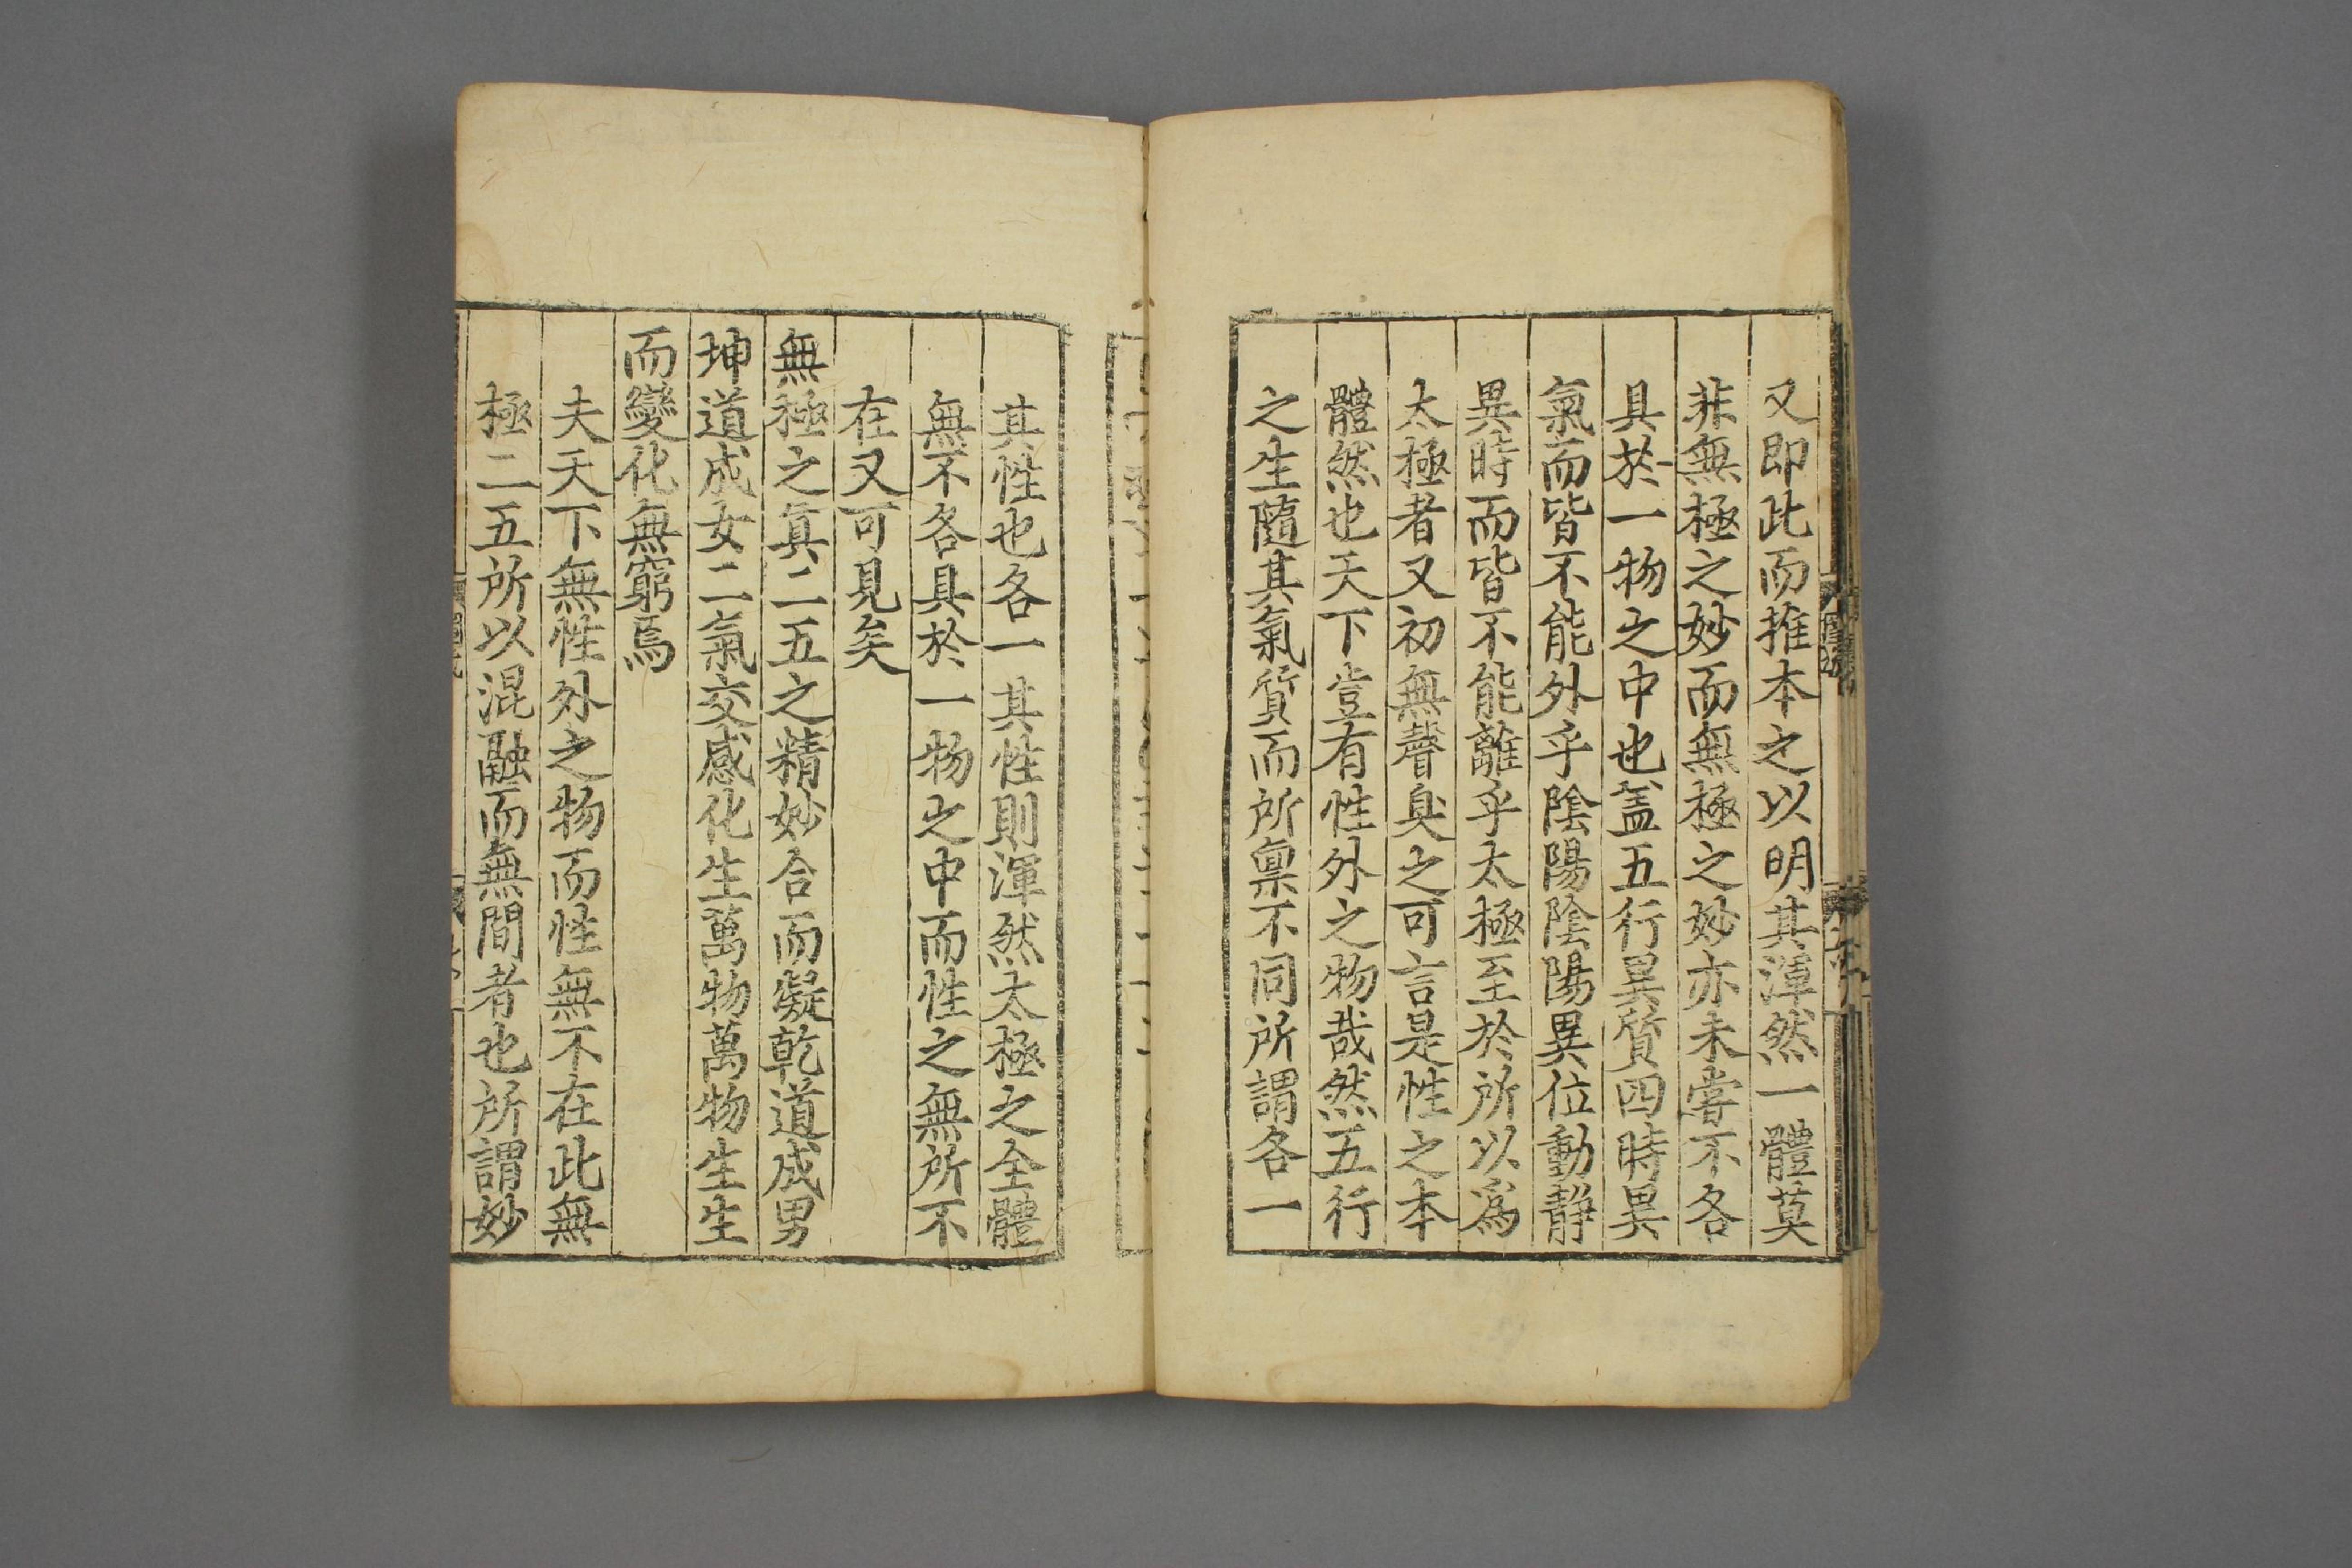 又即此而推本之以明其渾然一體莫
非無極之妙而無極之妙亦未嘗不各
具於一物之中也盖五行異質四時異
氣而皆不能外乎陰陽陰陽異位動靜
異時而皆不能離乎太極至於所以爲
太極者又初無聲臭之可言是性之本
體然也天下豈有性外之物哉然五行
之生隨其氣質而所稟不同所謂各一
其性也各一其性則渾然太極之全體
無不各具於一物之中而性之無所不
在又可見矣
無極之眞二五之精妙合而凝乾道成男
坤道成女二氣交感化生萬物萬物生生
而變化無窮焉
夫天下無性外之物而性無不在此無
極二五所以混融而無間者也所謂妙